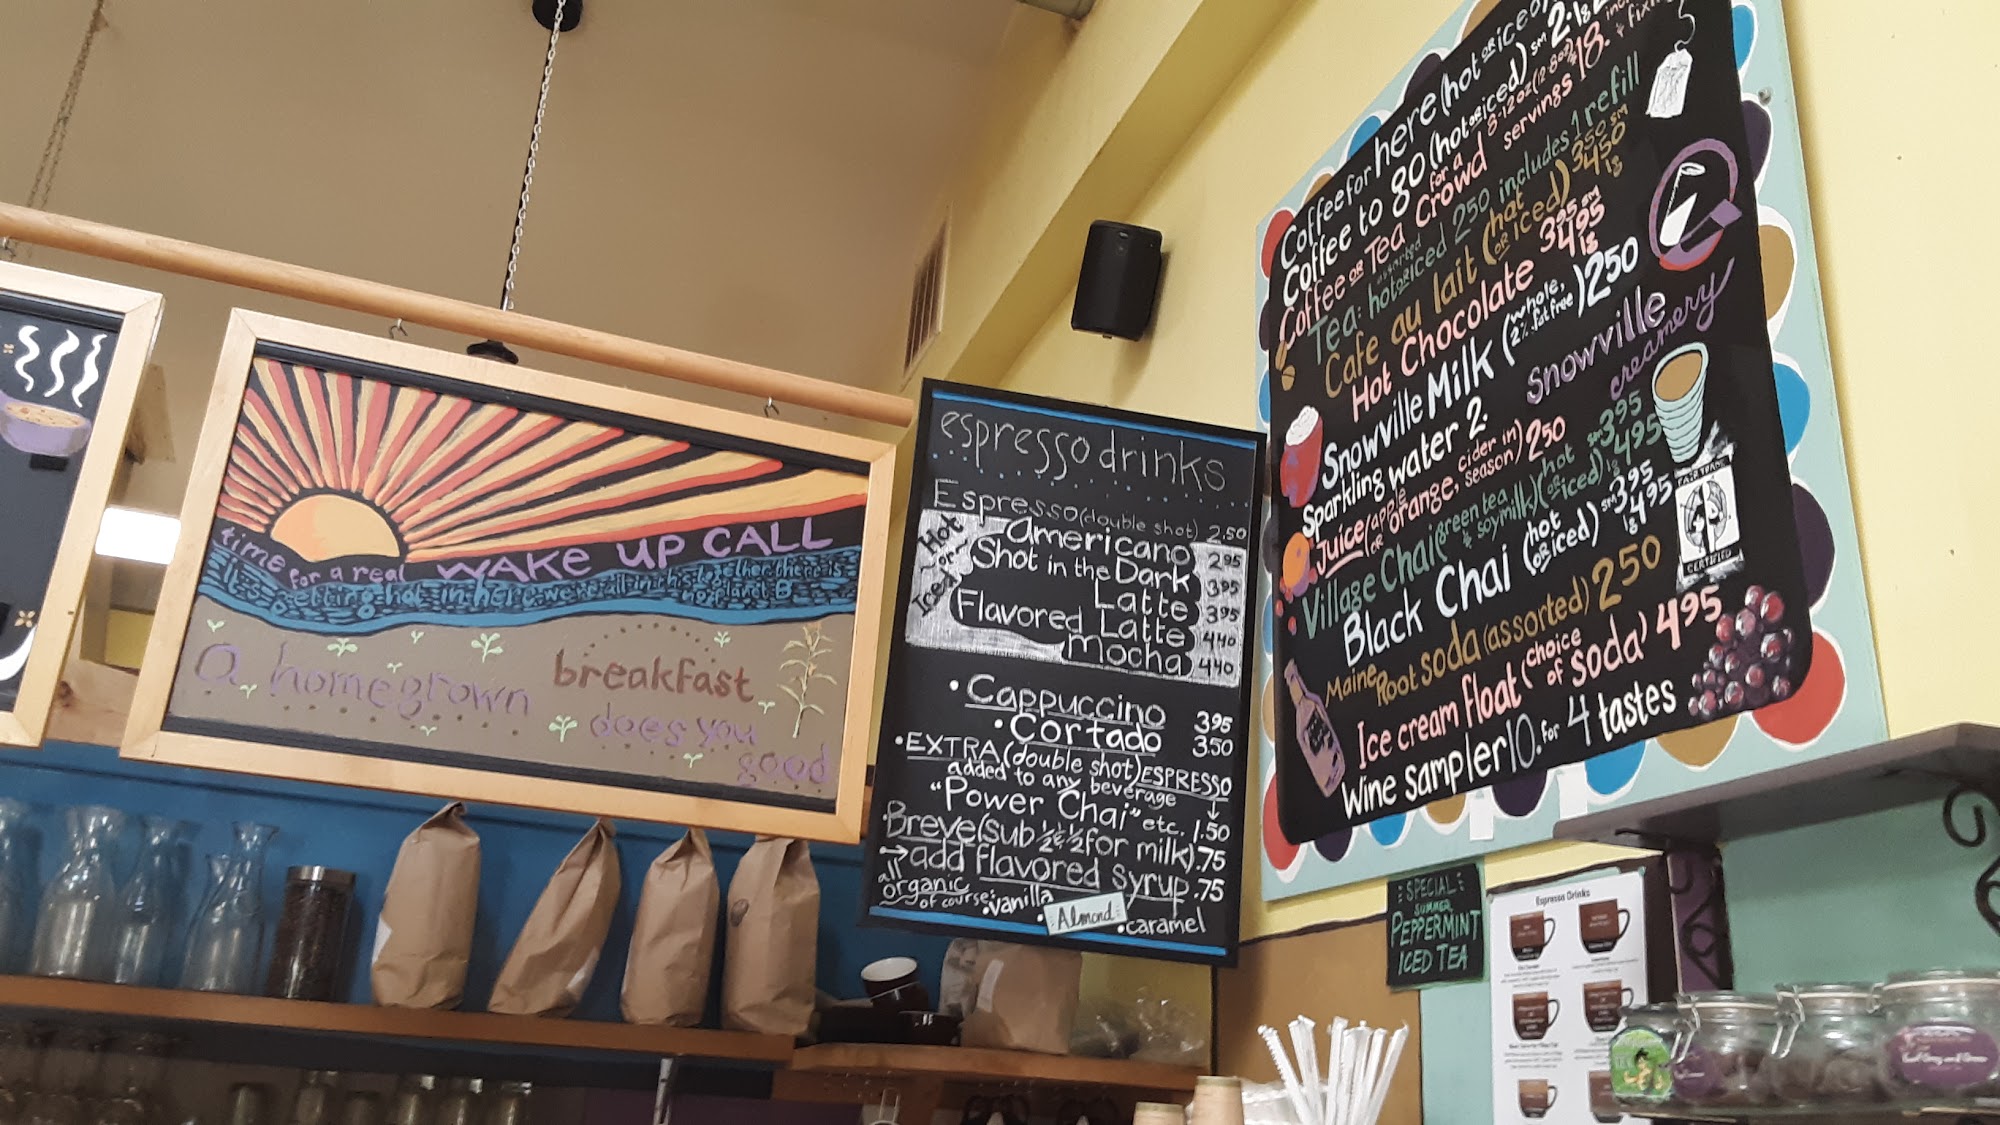 time for a real WAKE UP CALL
it's getting hot in here. we're all in this together there is no planet B
a homegrown breakfast
does you
good
espresso drinks
Espresso (double shot) 2.50
Hot or Iced
Americano 2.95
Shot in the Dark 3.95
Latte 3.95
Flavored Latte 4.40
Mocha 4.40
• Cappuccino 3.95
• Cortado 3.50
• EXTRA (double shot) ESPRESSO
added to any beverage
"Power Chai" etc. 1.50
• Breve (sub ½ & ½ for milk) .75
→ add flavored syrup .75
all organic of course: • vanilla
• Almond • caramel
Coffee for here (hot or iced)
Coffee to go (hot or iced) sm 2.
Coffee or Tea for a Crowd 8-12oz servings 18.
Tea: assorted hot or iced 250 includes 1 refill
Cafe au lait (hot or iced) 350 sm 450 lg
Hot Chocolate 395 sm 495 lg
Snowville Milk (whole, 2%, fat free) 250
Sparkling water 2. Snowville creamery
Juice (apple or orange, cider in season) 250
Village Chai (green tea & soymilk) (hot or iced) sm 395 lg 495
Black Chai (hot or iced) sm 395 lg 495
FAIR TRADE
CERTIFIED
Maine Root soda (assorted) 250
Ice cream float (choice of soda) 495
Wine sampler 10. for 4 tastes
SPECIAL
SUMMER
PEPPERMINT
ICED TEA
Espresso Drinks